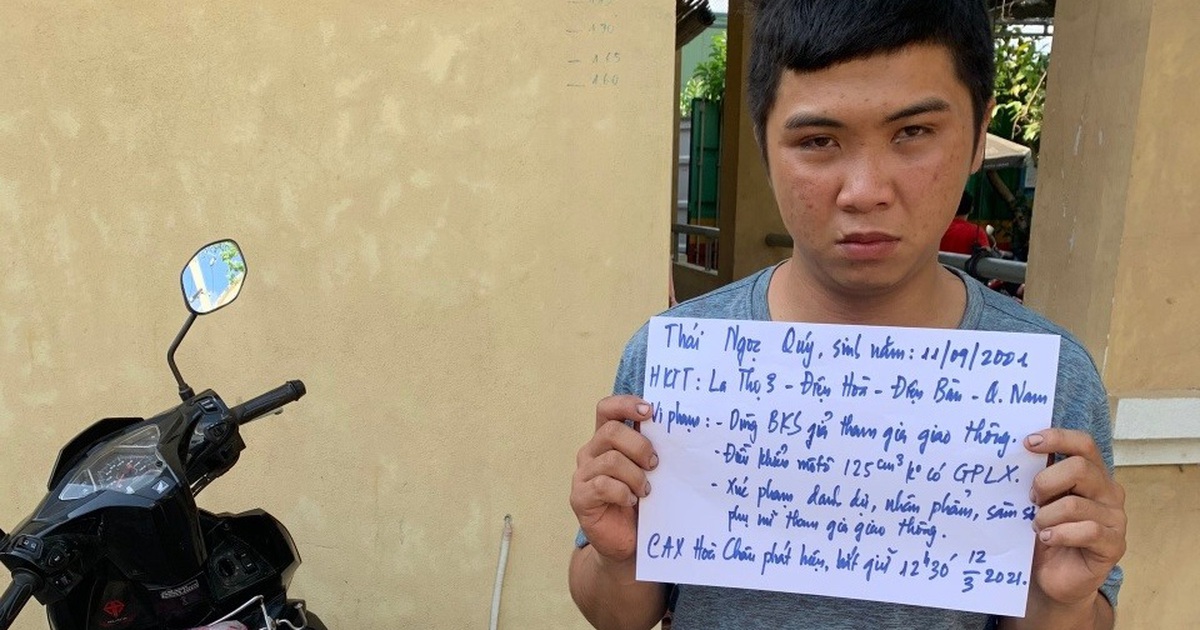 170
165
160
Thái Ngọc Quý, sinh năm: 11/09/2001
HKTT: La Thọ 3 - Điện Hòa - Điện Bàn - Q. Nam
Vi phạm: - Dùng BKS giả tham gia giao thông.
- Điều khiển môtô 125 cm³ ko có GPLX.
- Xúc phạm danh dự, nhân phẩm, sàm sỡ
phụ nữ tham gia giao thông.
CAX Hoà Châu phát hiện, bắt giữ 12h30' 12/3 2021.